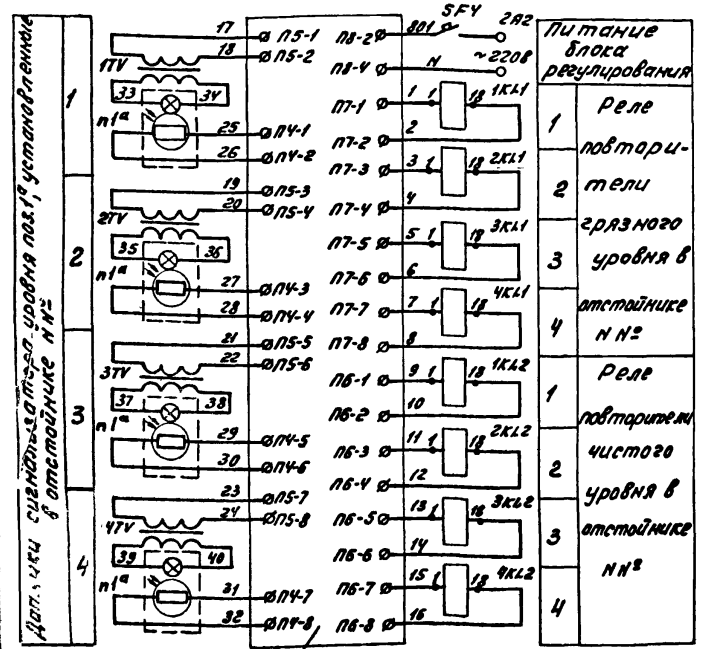 Датчики сигнализатора уровня поз.1ᵃ, установленные
в отстойнике N Nº
1
2
3
4
17
18
1TV
33
34
п1ᵃ
25
26
19
20
2TV
35
36
п1ᵃ
27
28
21
22
3TV
37
38
п1ᵃ
29
30
23
24
4TV
39
40
п1ᵃ
31
32
П5-1
П5-2
П4-1
П4-2
П5-3
П5-4
П4-3
П4-4
П5-5
П5-6
П4-5
П4-6
П5-7
П5-8
П4-7
П4-8
П8-2
801
SFY
2A2
П8-4
N
~220В
П7-1 1 1 18 1KL1
П7-2 2
П7-3 3 1 18 2KL1
П7-4 4
П7-5 5 1 18 3KL1
П7-6 6
П7-7 7 1 18 4KL1
П7-8 8
П6-1 9 1 18 1KL2
П6-2 10
П6-3 11 1 18 2KL2
П6-4 12
П6-5 13 1 18 3KL2
П6-6 14
П6-7 15 1 18 4KL2
П6-8 16
Питание
блока
регулирования
1
2
3
4
Реле
повтори-
тели
грязного
уровня в
отстойнике
N Nº
1
2
3
4
Реле
повторители
чистого
уровня в
отстойнике
N Nº